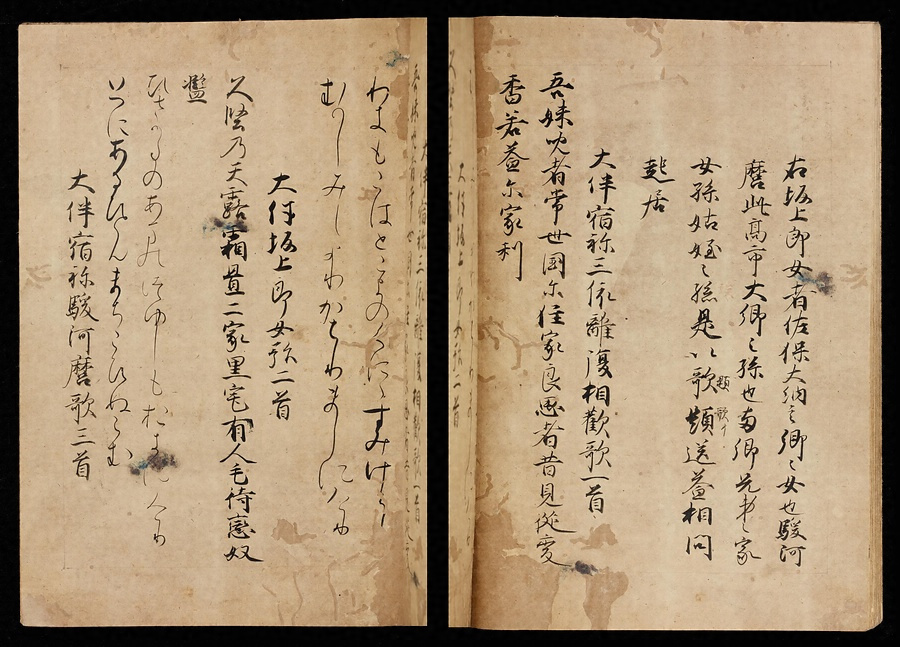 右坂上郎女者佐保大納言卿之女也駿河
麿此高市大卿之孫也両卿兄弟之家
女孫姑姪之孫是以歌頻送益相問
題歌
起居
大伴宿祢三依離復相歡歌一首
吾妹児者常世国尓住家良思者昔見従変
若益尓家利
わきもこはとこよのくにゝすみけらし
むかしみしよりわかえましにけり
大伴坂上郎女歌二首
久堅乃天露霜置二家里宅有人毛待恋奴
濫
ひさかたのあまのつゆしもおきにけり
いへにあるひともまちこひぬらむ
大伴宿祢駿河麿歌三首